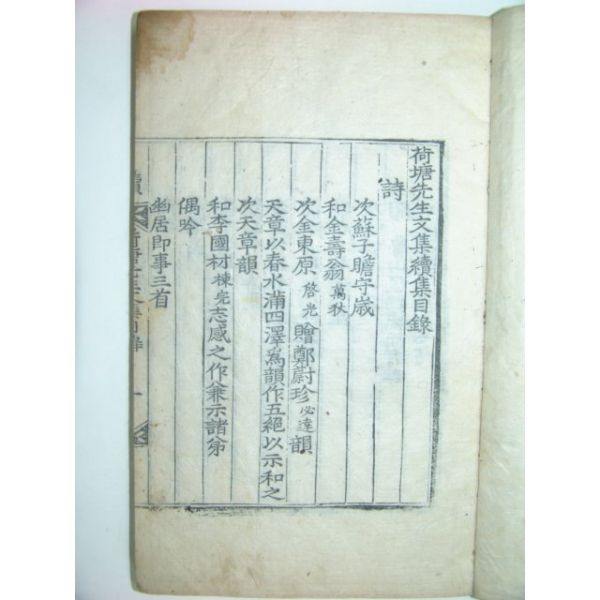 荷塘先生文集續集目錄
詩
次蘇子瞻守歲
和金壽翁萬秋
次金東原啓光贈鄭蔚珍必達韻
天章以春水滿四澤為韻作五絕以示和之
次天章韻
和李國材棟完志感之作兼示諸弟
偶吟
幽居即事三首